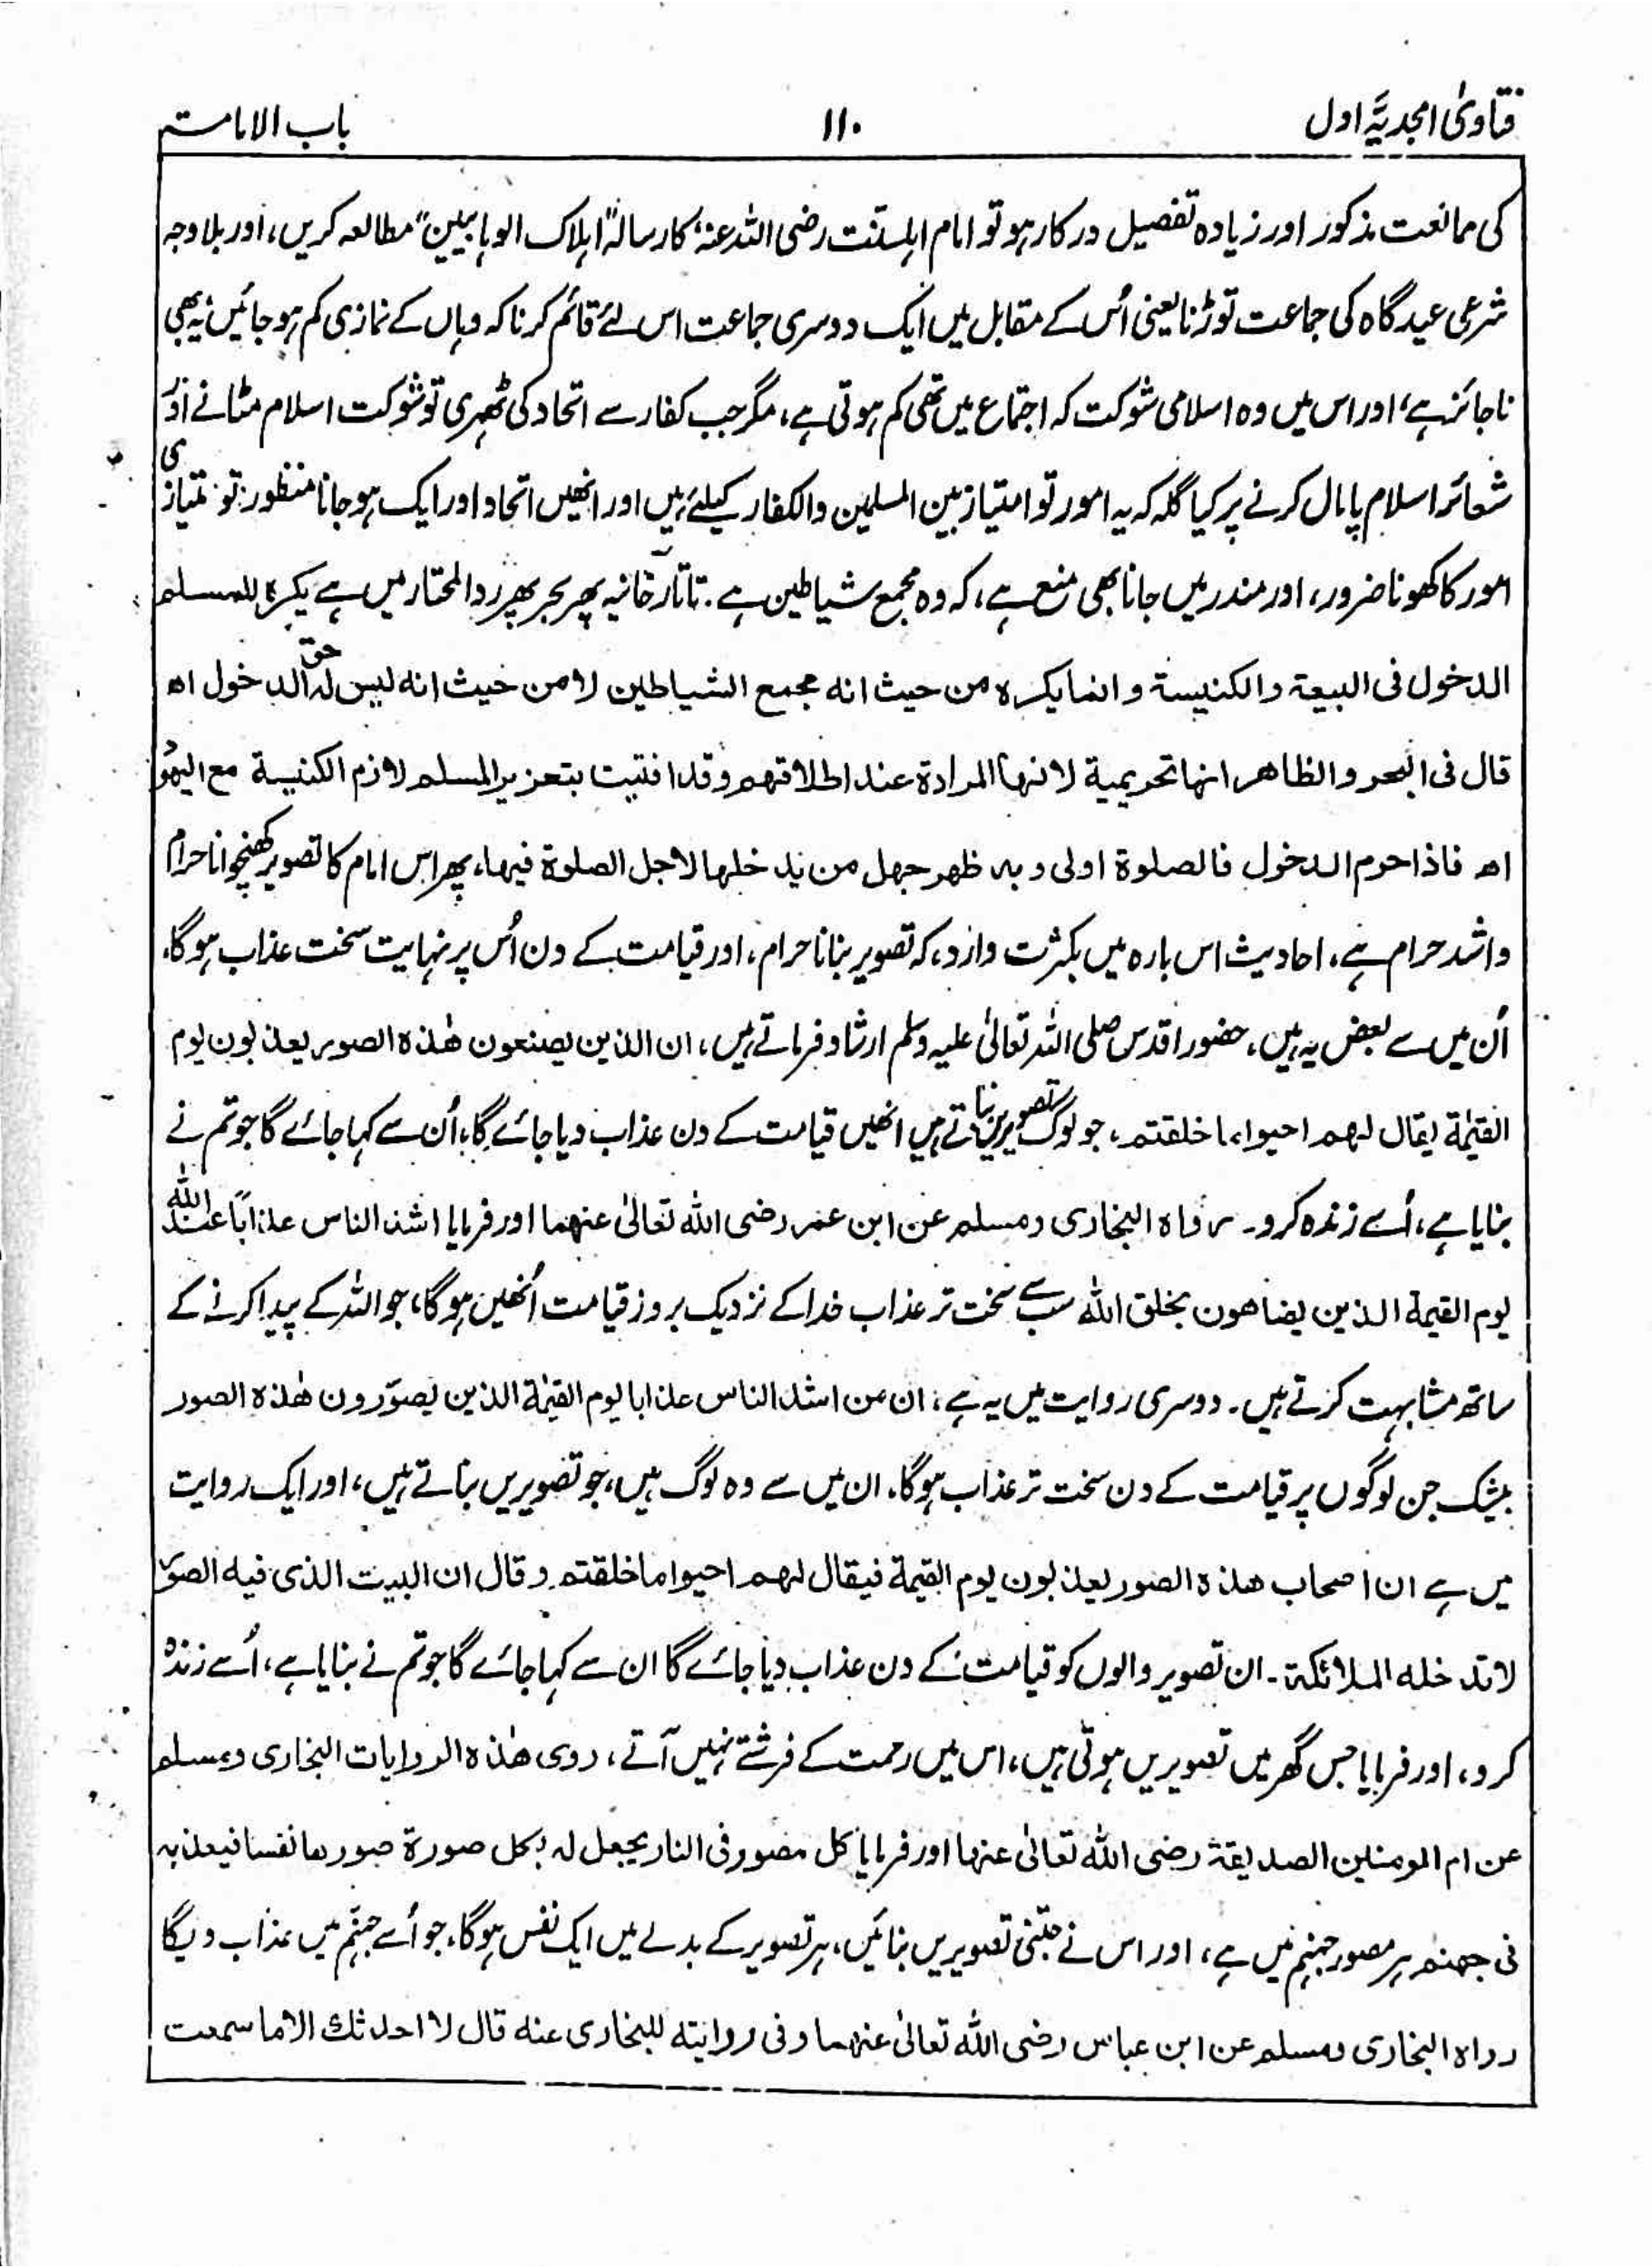 فتاویٰ امجدیہ اول ۱۱۰ باب الامامتہ
کی ممانعت مذکور اور زیادہ تفصیل درکار ہو تو امام اہلسنت رضی اللہ عنہٗ کا رسالہ "اہلاک الوہابیین" مطالعہ کریں، اور بلا وجہ
شرعی عیدگاہ کی جماعت توڑنا یعنی اُس کے مقابل میں ایک دوسری جماعت اس لئے قائم کرنا کہ وہاں کے نمازی کم ہو جائیں یہ بھی
ناجائز ہے، اور اس میں وہ اسلامی شوکت کہ اجتماع میں تھی کم ہوتی ہے، مگر جب کفار سے اتحاد کی ٹھہری تو شوکت اسلام مٹانے اور
شعائر اسلام پامال کرنے پر کیا گلہ کہ یہ امور تو امتیاز بین المسلمین والکفار کیلئے ہیں اور انھیں اتحاد اور ایک ہو جانا منظور تو امتیازی
امور کا کھونا ضرور، اور مندر میں جانا بھی منع ہے، کہ وہ مجمع شیاطین ہے۔ تاتارخانیہ پھر بحر پھر رد المحتار میں ہے یکرہ للمسلم
الدخول فی البیعۃ والکنیسۃ وانما یکرہ من حیث انہ مجمع الشیاطین لا من حیث انہ لیس لہ حق الدخول اھ
قال فی البحر والظاھر انھا تحریمیۃ لانھا المرادۃ عند اطلاقھم وقد افتیت بتعزیر المسلم لازم الکنیسۃ مع الیھود
اھ فاذا حرم الدخول فالصلوۃ اولی وبہ ظھر جھل من ید خلھا لاجل الصلوۃ فیھا، پھر اس امام کا تصویر کھنچوانا حرام
واشد حرام ہے۔ احادیث اس بارہ میں بکثرت وارد، کہ تصویر بنانا حرام، اور قیامت کے دن اُس پر نہایت سخت عذاب ہوگا،
اُن میں سے بعض یہ ہیں، حضور اقدس صلی اللہ تعالیٰ علیہ وسلم ارشاد فرماتے ہیں، ان الذین یصنعون ھٰذہ الصور یعذبون یوم
القیٰمۃ یقال لھم احیوا ما خلقتم، جو لوگ تصویریں بناتے ہیں انھیں قیامت کے دن عذاب دیا جائے گا، اُن سے کہا جائے گا جو تم نے
بنایا ہے، اُسے زندہ کرو۔ رواہ البخاری ومسلم عن ابن عمر رضی اللہ تعالیٰ عنھما اور فرمایا اشد الناس عذاباً عند اللہ
یوم القیمۃ الذین یضاھون بخلق اللہ سب سے سخت تر عذاب خدا کے نزدیک بروز قیامت اُنھیں ہوگا، جو اللہ کے پیدا کرنے کے
ساتھ مشابہت کرتے ہیں۔ دوسری روایت میں یہ ہے، ان من اشد الناس عذابا یوم القیٰمۃ الذین یصوّرون ھٰذہ الصور
بیشک جن لوگوں پر قیامت کے دن سخت تر عذاب ہوگا، ان میں سے وہ لوگ ہیں، جو تصویریں بناتے ہیں، اور ایک روایت
میں ہے ان اصحاب ھذہ الصور یعذبون یوم القیمۃ فیقال لھم احیوا ما خلقتم وقال ان البیت الذی فیہ الصور
لا تدخلہ الملائکۃ۔ ان تصویر والوں کو قیامت کے دن عذاب دیا جائے گا ان سے کہا جائے گا جو تم نے بنایا ہے، اُسے زندہ
کرو، اور فرمایا جس گھر میں تصویریں ہوتی ہیں، اس میں رحمت کے فرشتے نہیں آتے، روی ھٰذہ الروایات البخاری ومسلم
عن ام المومنین الصدیقۃ رضی اللہ تعالیٰ عنھا اور فرمایا کل مصور فی النار یجعل لہ بکل صورۃ صورھا نفسا فیعذبہ
فی جھنم ہر مصور جہنم میں ہے، اور اس نے جتنی تصویریں بنائیں، ہر تصویر کے بدلے میں ایک نفس ہوگا، جو اُسے جہنم میں عذاب دیگا
رواہ البخاری ومسلم عن ابن عباس رضی اللہ تعالیٰ عنھما وفی روایتہ للبخاری عنہ قال لا احدثک الا ما سمعت